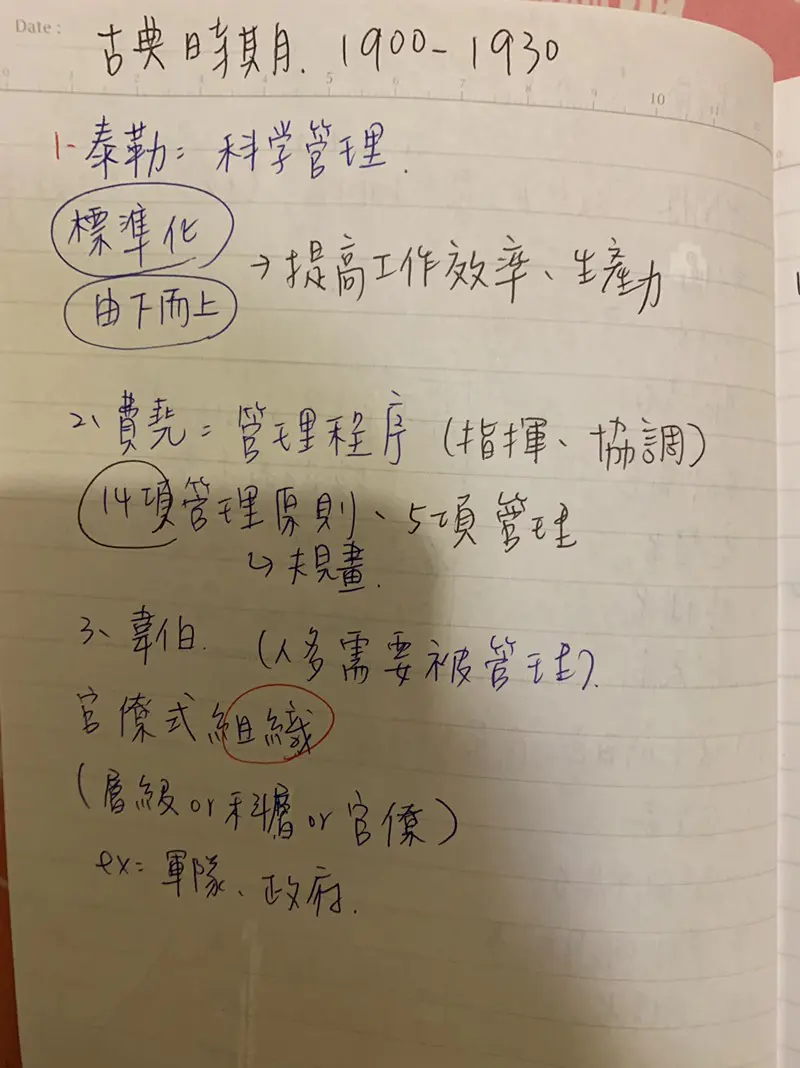 Date:
古典時期. 1900-1930
0 1 2 3 4 5 6 7 8 9 10 11
1- 泰勒: 科学管理.
標準化
由下而上
→提高工作效率、生產力
2、費堯: 管理程序 (指揮、協調)
14項管理原則、5項管理
↳規畫.
3、韋伯. (人多需要被管理).
官僚式組織
(層級or科層or官僚)
ex: 軍隊、政府.